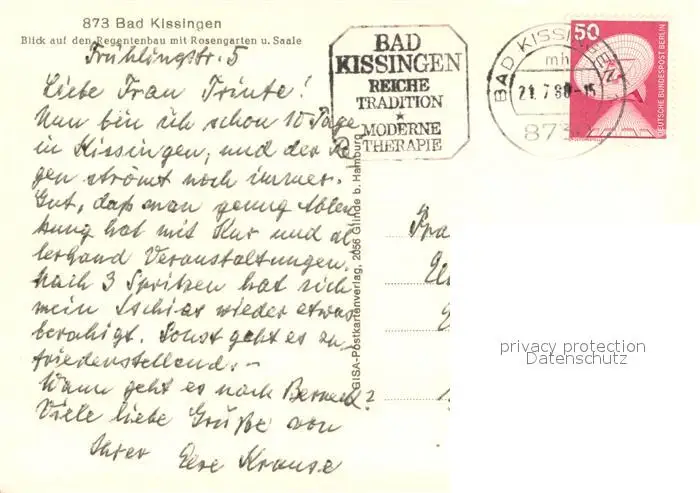 873 Bad Kissingen
Blick auf den Regentenbau mit Rosengarten u. Saale
Frühlingstr. 5
Liebe Frau Trinte!
Nun bin ich schon 10 Tage
in Kissingen, und der Re-
gen strömt noch immer.
Gut, daß man genug Ablen-
kung hat mit Kur und al-
lerhand Veranstaltungen.
Nach 3 Spritzen hat sich
mein Ischias wieder etwas
beruhigt. Sonst geht es zu-
friedenstellend. –
Wann geht es nach Berneck?
Viele liebe Grüße von
Ihrer Krause
GISA-Postkartenverlag, 2056 Glinde b. Hamburg
BAD
KISSINGEN
REICHE
TRADITION
★
MODERNE
THERAPIE
BAD KISSINGEN
mh
21.7.80-15
873
50
DEUTSCHE BUNDESPOST BERLIN
privacy protection
Datenschutz